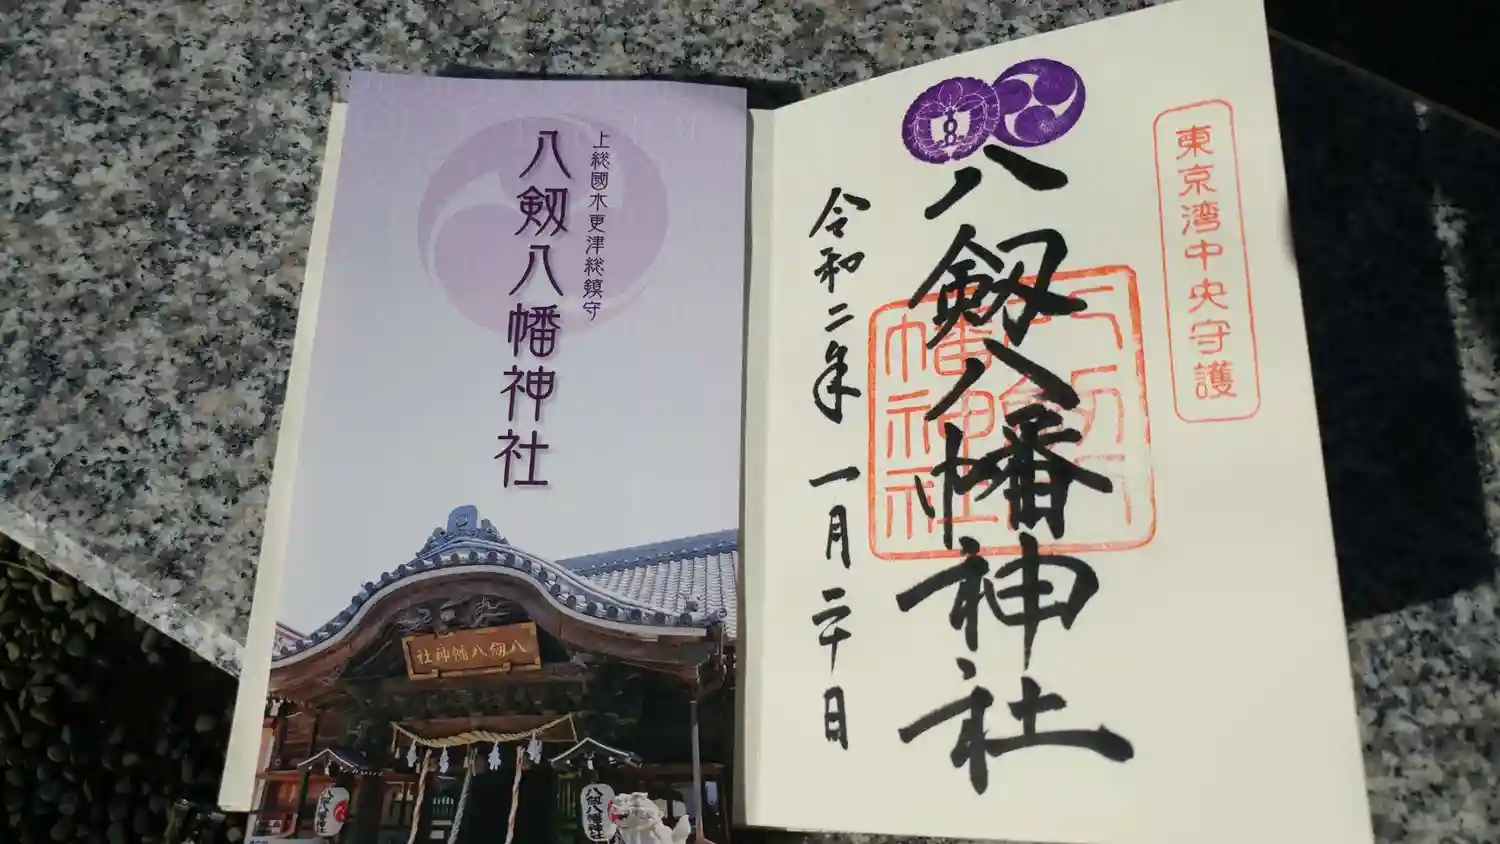 上総國木更津総鎮守
八剱八幡神社
八剱八幡神社
八剱八幡神社
東京湾中央守護
八剱八幡神社
八剱八幡神社
令和二年 一月二十日